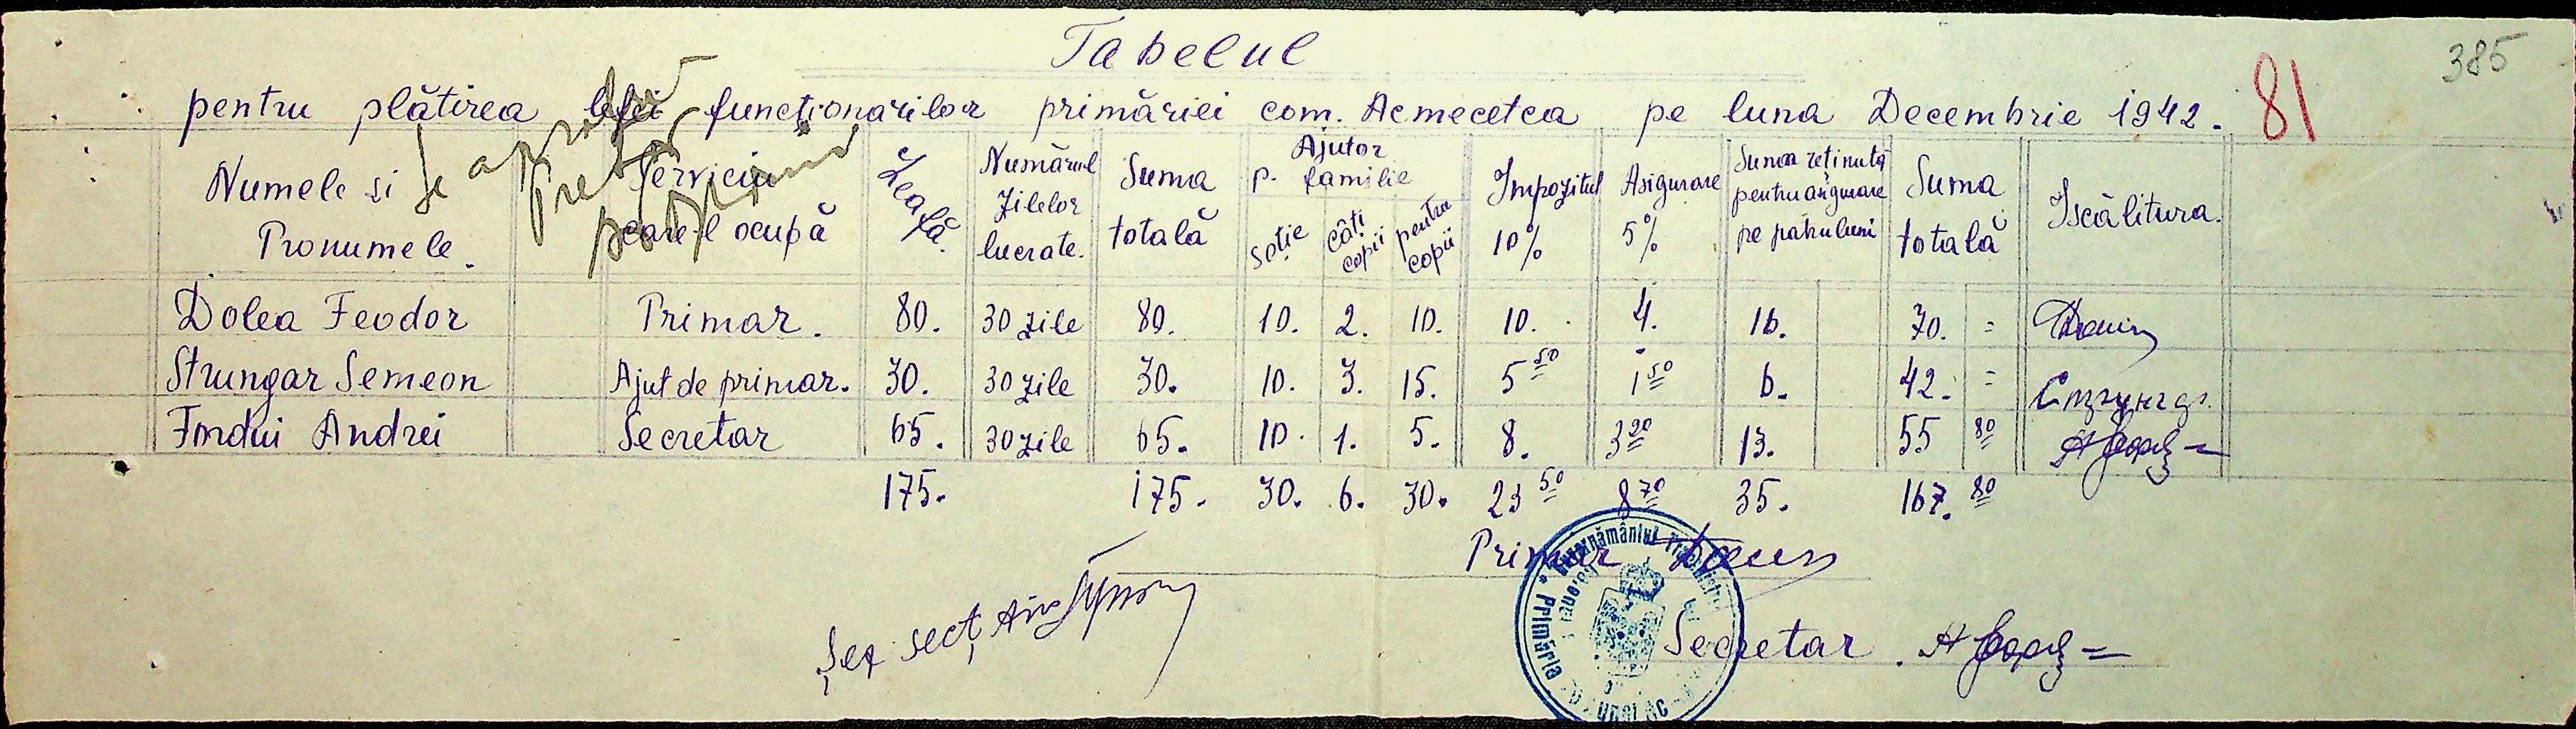 Tabelul
385
81
pentru plătirea lefei funcționarilor primăriei com. Acmecetca pe luna Decembrie 1942.
Se aprobă
Pretor
Numele si Pronumele. Serviciu care-l ocupă Leafă. Numărul Zilelor lucrate. Suma totală Ajutor p. familie soție câți copii pentru copii Impozitul 10% Asigurare 5% Suma reținută pentru asigurare pe patru luni Suma totală Iscălitura.
Dolea Feodor Primar. 80. 30 zile 80. 10. 2. 10. 10. 4. 16. 70. =
Strungar Semeon Ajut de primar. 30. 30 zile 30. 10. 3. 15. 5 50 1 50 6. 42. = Струнгар
Fondui Andrei Secretar 65. 30 zile 65. 10. 1. 5. 8. 3 20 13. 55 80
175. 175. 30. 6. 30. 23 50 8 70 35. 167. 80
Primar
Șef secț
Secretar
Guvernământul
Primăria